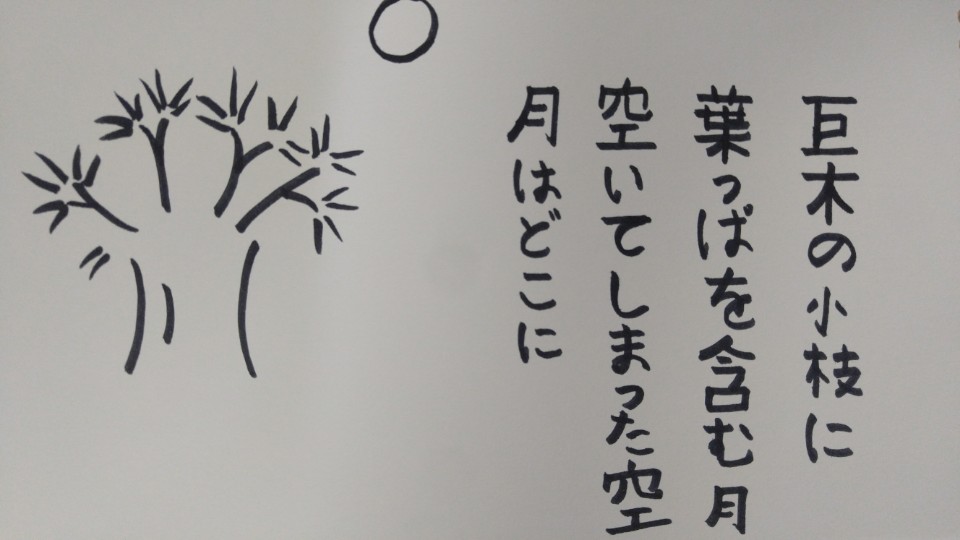 巨木の小枝に
葉っぱを含む月
空いてしまった空
月はどこに